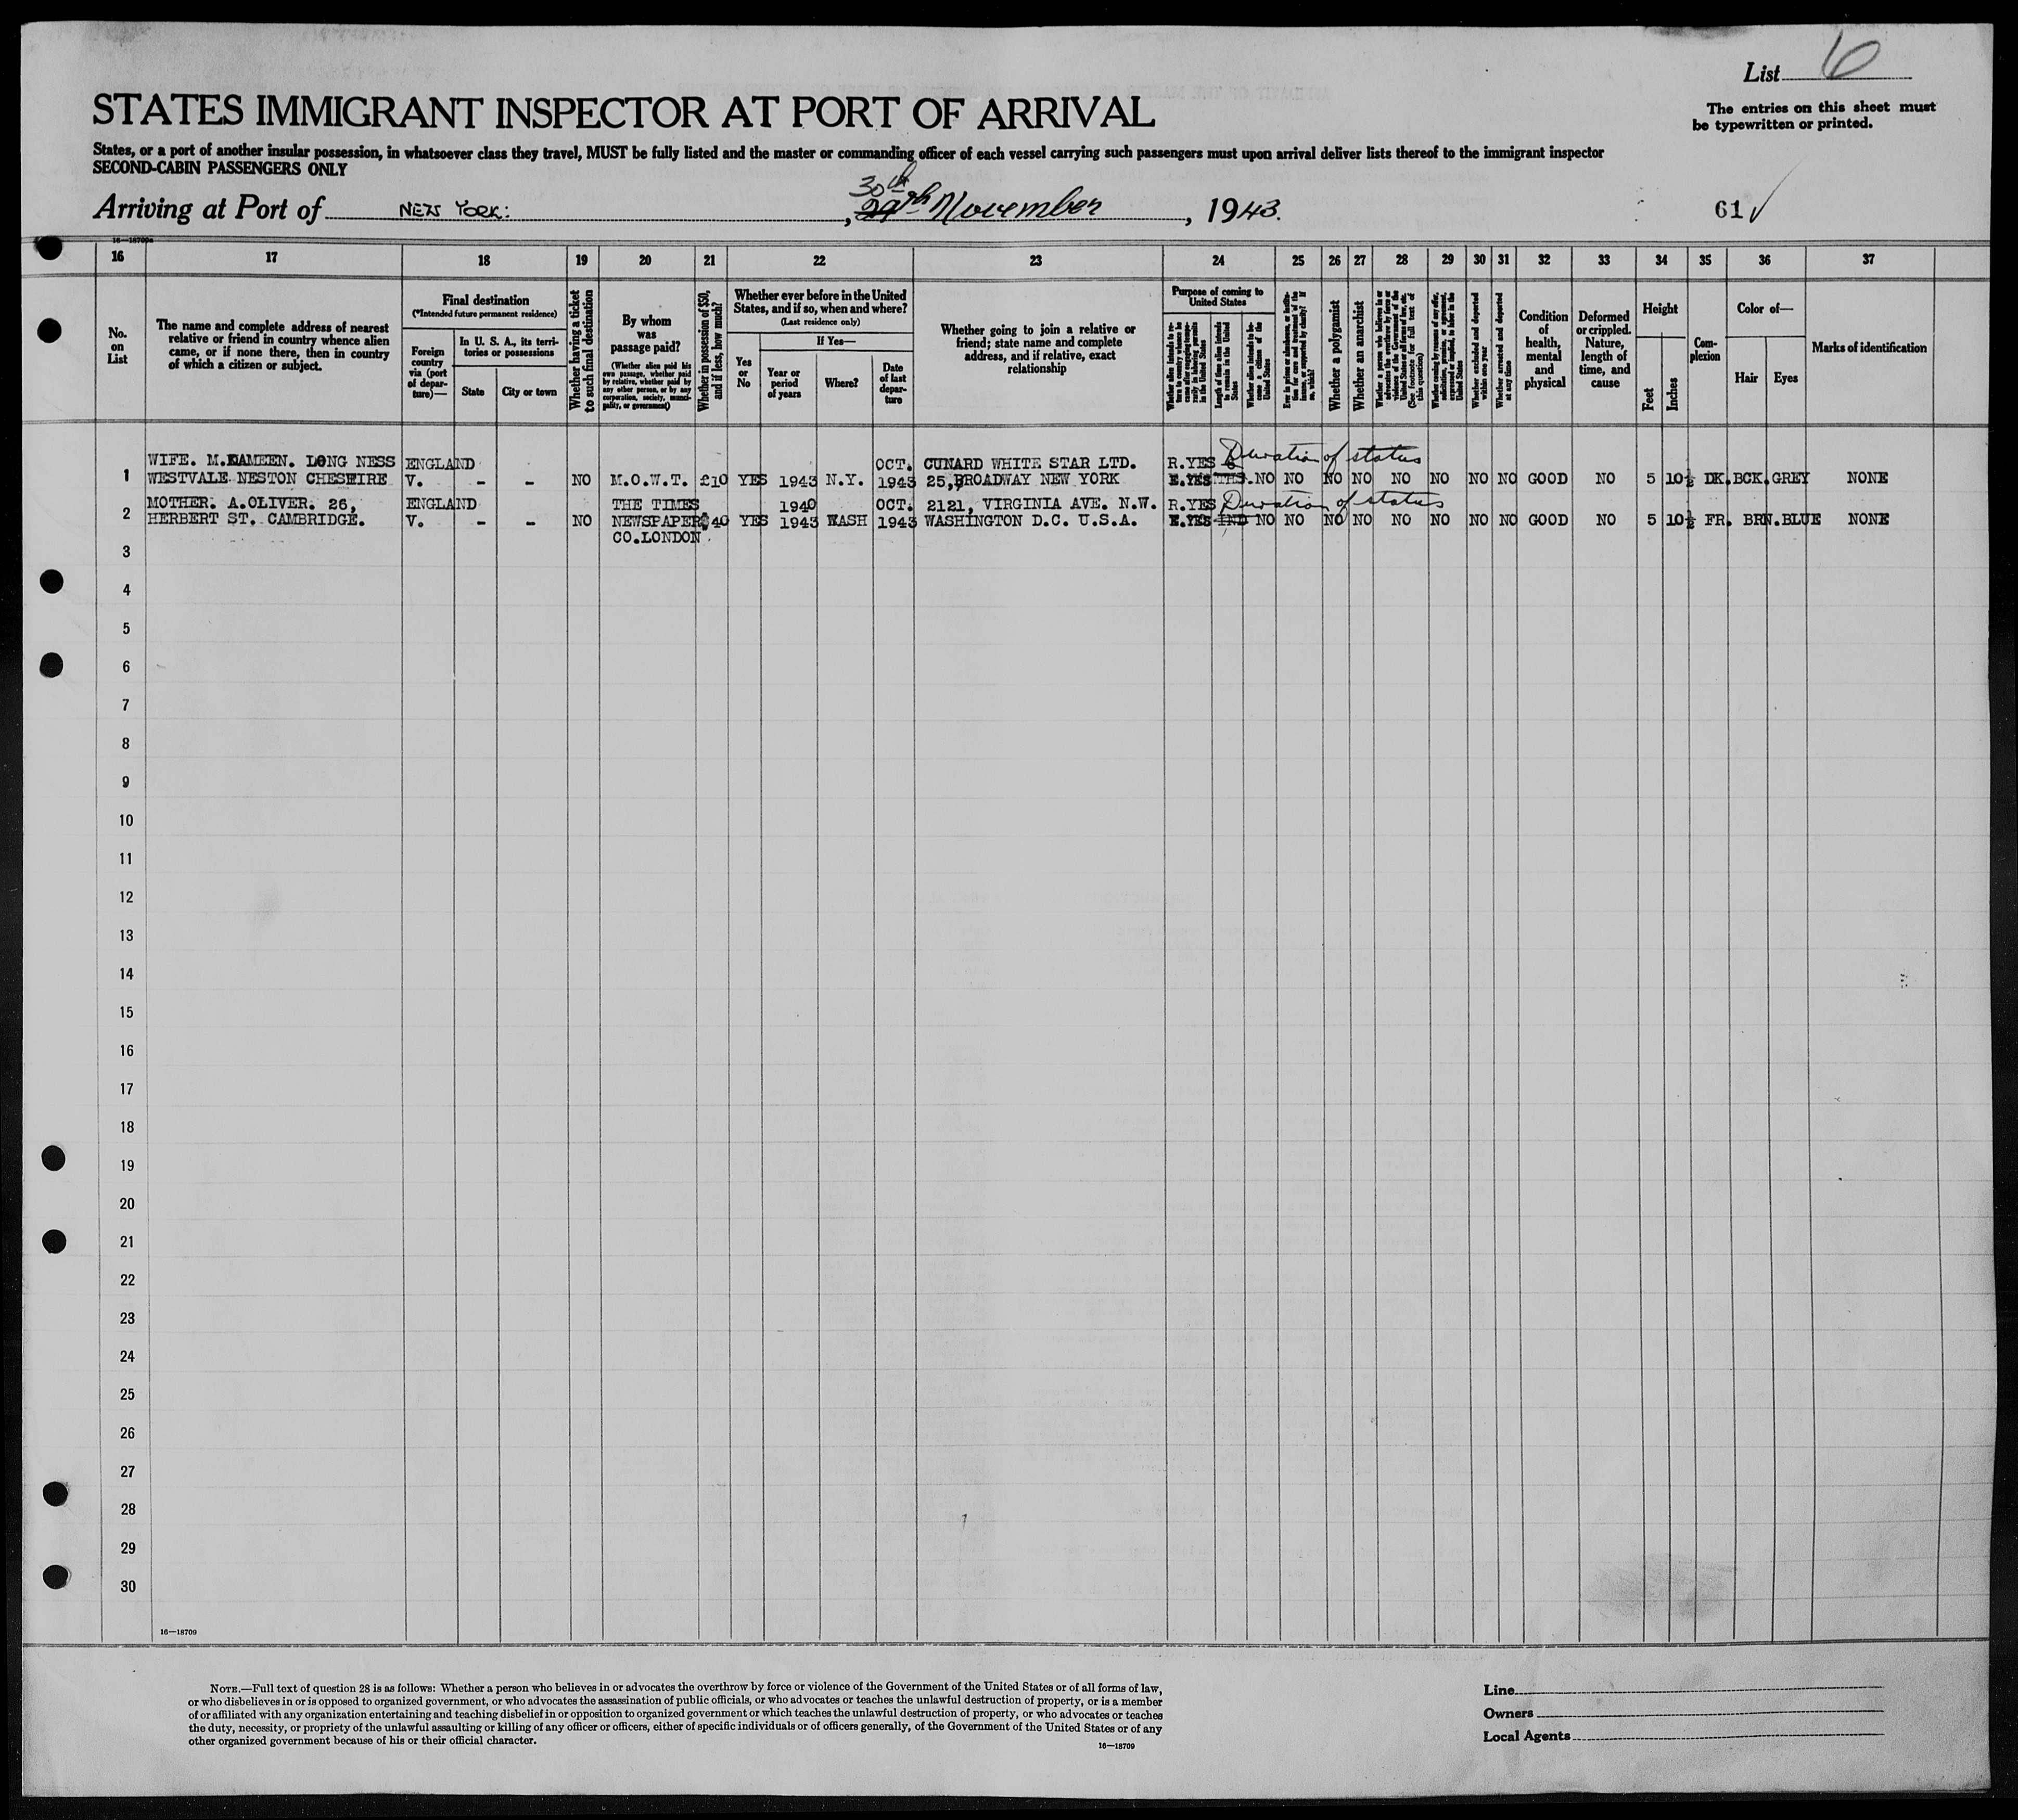 List 6
The entries on this sheet must
be typewritten or printed.
STATES IMMIGRANT INSPECTOR AT PORT OF ARRIVAL
States, or a port of another insular possession, in whatsoever class they travel, MUST be fully listed and the master or commanding officer of each vessel carrying such passengers must upon arrival deliver lists thereof to the immigrant inspector
SECOND-CABIN PASSENGERS ONLY
30th
Arriving at Port of NEW YORK: , 29th November , 1943.
61 ✓
16—18709a
16 17 18 19 20 21 22 23 24 25 26 27 28 29 30 31 32 33 34 35 36 37
No.
on
List
The name and complete address of nearest
relative or friend in country whence alien
came, or if none there, then in country
of which a citizen or subject.
Final destination
(*Intended future permanent residence)
Foreign
country
via (port
of depar-
ture)—
In U. S. A., its terri-
tories or possessions
State
City or town
Whether having a ticket
to such final destination
By whom
was
passage paid?
(Whether alien paid his
own passage, whether paid
by relative, whether paid by
any other person, or by any
corporation, society, munici-
pality, or government)
Whether in possession of $50,
and if less, how much?
Whether ever before in the United
States, and if so, when and where?
(Last residence only)
Yes
or
No
If Yes—
Year or
period
of years
Where?
Date
of last
depar-
ture
Whether going to join a relative or
friend; state name and complete
address, and if relative, exact
relationship
Purpose of coming to
United States
Whether alien intends to re-
turn to country whence he
came after engaging tempo-
rarily in laboring pursuits
in the United States
Length of time alien intends
to remain in the United
States
Whether alien intends to be-
come a citizen of the
United States
Ever in prison or almshouse, or institu-
tion for care and treatment of the
insane, or supported by charity? If
so, which?
Whether a polygamist
Whether an anarchist
Whether a person who believes in or
advocates the overthrow by force or
violence of the Government of the
United States or all forms of law, etc.
(See footnote for full text of
this question)
Whether coming by reason of any offer,
solicitation, promise, or agreement,
expressed or implied, to labor in the
United States
Whether excluded and deported
within one year
Whether arrested and deported
at any time
Condition
of
health,
mental
and
physical
Deformed
or crippled.
Nature,
length of
time, and
cause
Height
Feet
Inches
Com-
plexion
Color of—
Hair
Eyes
Marks of identification
WIFE. M.DAMEEN. LONG NESS ENGLAND OCT. CUNARD WHITE STAR LTD. R.YES 6 Duration of status
1 WESTVALE NESTON CHESHIRE V. - - NO M.O.W.T. £10 YES 1943 N.Y. 1943 25, BROADWAY NEW YORK E.YES THS. NO NO NO NO NO NO NO NO GOOD NO 5 10½ DK. BCK. GREY NONE
MOTHER. A.OLIVER. 26, ENGLAND THE TIMES 1940 OCT. 2121, VIRGINIA AVE. N.W. R.YES Duration of status
2 HERBERT ST. CAMBRIDGE. V. - - NO NEWSPAPER $40 YES 1943 WASH 1943 WASHINGTON D.C. U.S.A. E.YES IND NO NO NO NO NO NO NO NO GOOD NO 5 10½ FR. BRN. BLUE NONE
CO.LONDON.
3
4
5
6
7
8
9
10
11
12
13
14
15
16
17
18
19
20
21
22
23
24
25
26
27
28
29
30
16—18709
NOTE.—Full text of question 28 is as follows: Whether a person who believes in or advocates the overthrow by force or violence of the Government of the United States or of all forms of law,
or who disbelieves in or is opposed to organized government, or who advocates the assassination of public officials, or who advocates or teaches the unlawful destruction of property, or is a member
of or affiliated with any organization entertaining and teaching disbelief in or opposition to organized government or which teaches the unlawful destruction of property, or who advocates or teaches
the duty, necessity, or propriety of the unlawful assaulting or killing of any officer or officers, either of specific individuals or of officers generally, of the Government of the United States or of any
other organized government because of his or their official character.
16—18709
Line
Owners
Local Agents